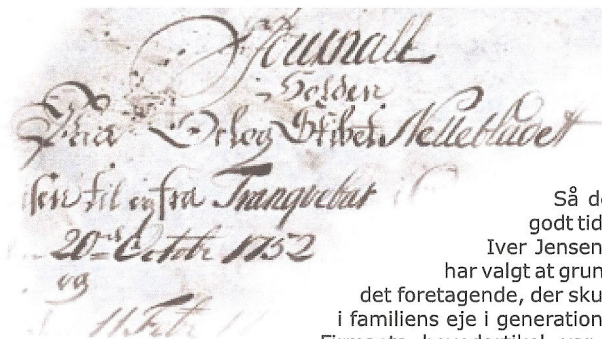 Journall
Holden
Paa Orlog Skibet Nellebladet
til og fra Tranquebar
20 Octobr 1752
og
11 Febr
Så de
godt tid
Iver Jensen
har valgt at grun
det foretagende, der sku
i familiens eje i generation